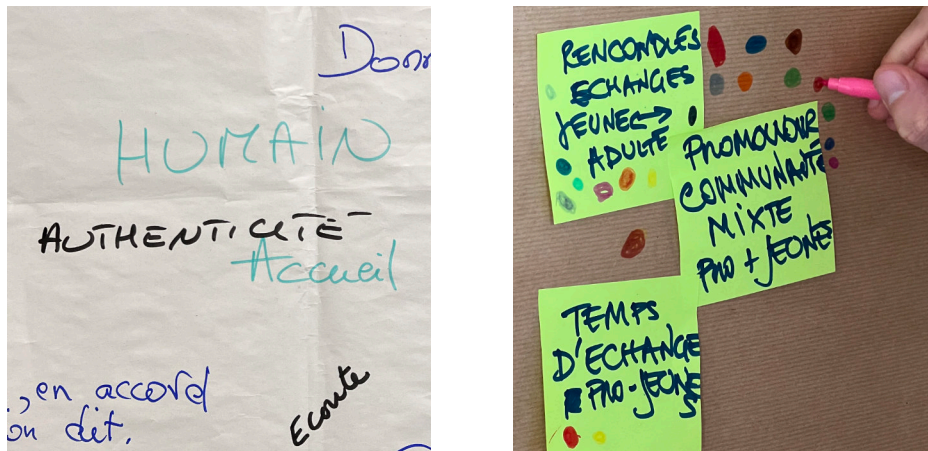 Donn
HUMAIN
AUTHENTICITÉ
Accueil
, en accord
on dit.
Ecoute
RENCONDRES
ECHANGES
JEUNE ↔
ADULTE
PROMOUVOIR
COMMUNAUTÉ
MIXTE
PRO + JEUNES
TEMPS
D'ECHANGE
PRO - JEUNE
S